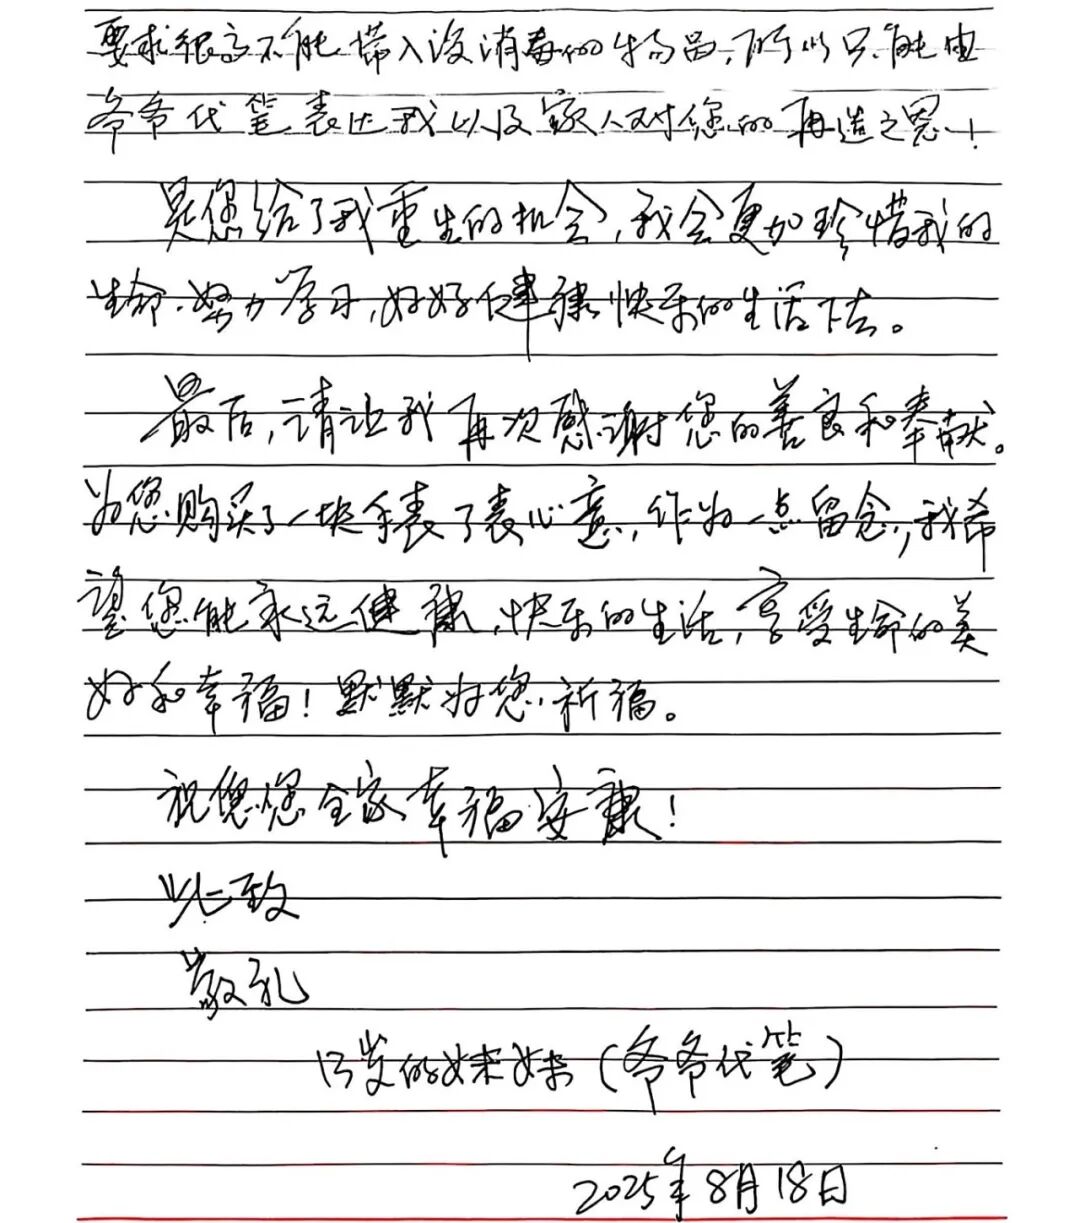 要求很高不能带入没消毒的物品，所以只能由
爷爷代笔表达我以及家人对您的再造之恩！
是您给了我重生的机会，我会更加珍惜我的
生命.努力学习，好好健康快乐的生活下去。
最后，请让我再次感谢您的善良和奉献。
为您购买了一块手表了表心意，作为一点留念，我希
望您能永远健康，快乐的生活，享受生命的美
好和幸福！默默为您祈福。
祝您您全家幸福安康！
此致
敬礼
13岁的妹妹（爷爷代笔）
2025年8月18日